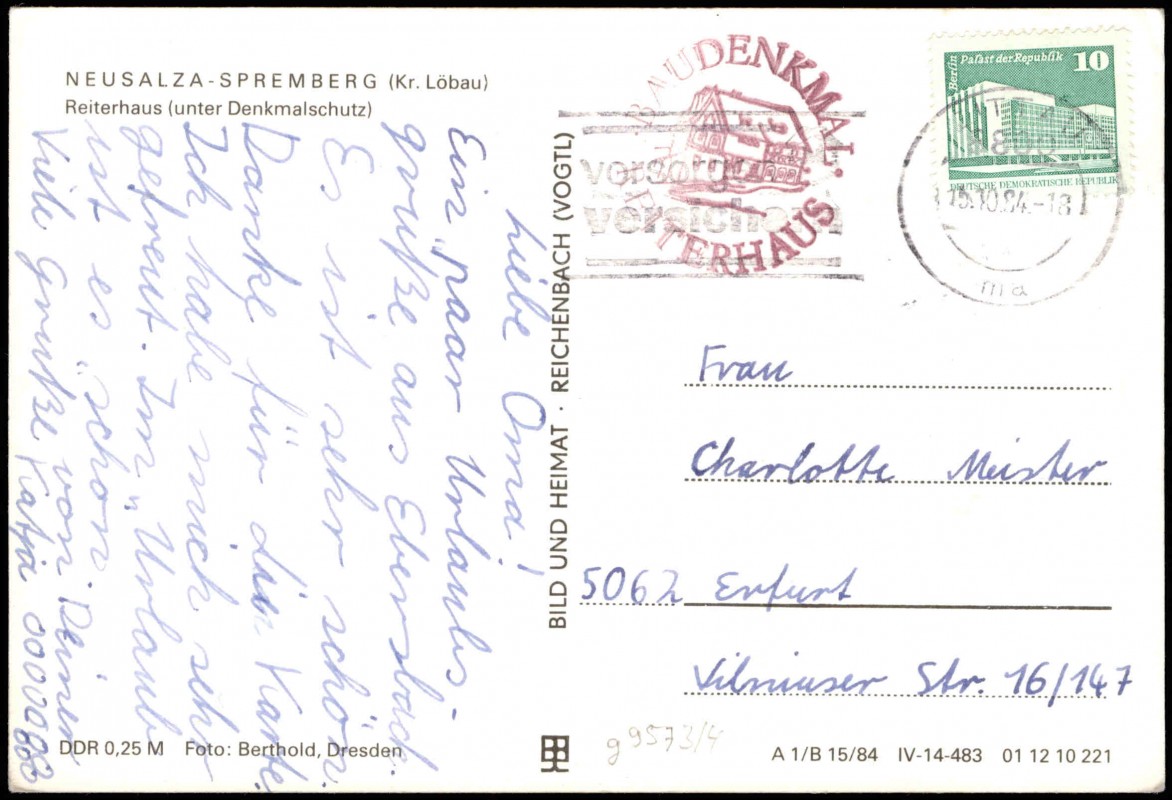 NEUSALZA-SPREMBERG (Kr. Löbau)
Reiterhaus (unter Denkmalschutz)
Liebe Oma!
Ein paar Urlaubs-
grüße aus Ebersbach.
Es ist sehr schön.
Danke für die Karte.
Ich habe mich sehr
gefreut. Im "Urlaub
ist es "schön.
Viele Grüße von Deiner
Katja ooooooo
DDR 0,25 M Foto: Berthold, Dresden
BILD UND HEIMAT · REICHENBACH (VOGTL)
BAUDENKMAL
REITERHAUS
vorsorgen
versichern
Berlin Palast der Republik 10
DEUTSCHE DEMOKRATISCHE REPUBLIK
15.10.84.-18
ma
Frau
Charlotte Meister
5062 Erfurt
Vilniuser Str. 16/147
g9573/4
A 1/B 15/84 IV-14-483 01 12 10 221